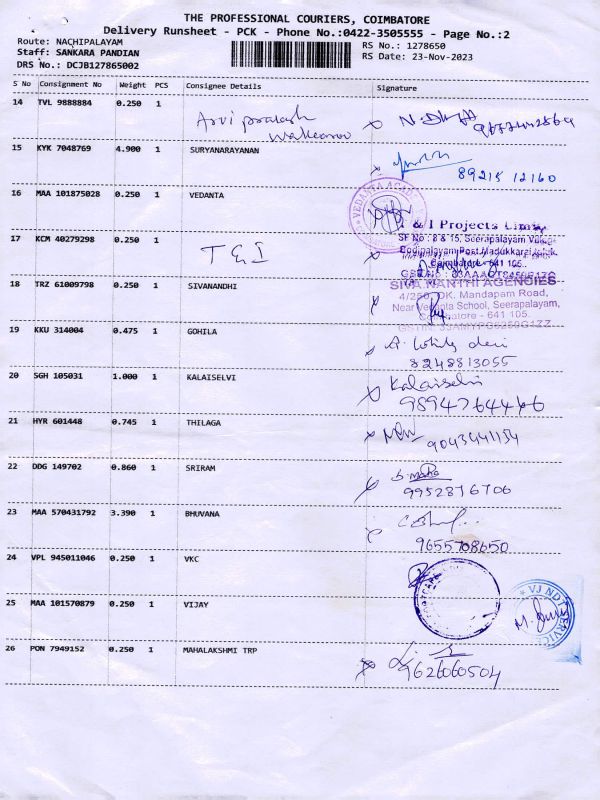 THE PROFESSIONAL COURIERS, COIMBATORE
Delivery Runsheet - PCK - Phone No.:0422-3505555 - Page No.:2
Route: NACHIPALAYAM
Staff: SANKARA PANDIAN
DRS No.: DCJB127865002
RS No.: 1278650
RS Date: 23-Nov-2023
S No Consignment No Weight PCS Consignee Details Signature
14 TVL 9888884 0.250 1
15 KYK 7048769 4.900 1 SURYANARAYANAN
89215 12160
16 MAA 101875028 0.250 1 VEDANTA
VEDANTA ACAD
& I Projects Limit
SF No : 8 & 15, Seerapalayam Village
17 KCM 40279298 0.250 1
Coimbatore - 641 105.
18 TRZ 61009798 0.250 1 SIVANANDHI
SIVA NANTHI AGENCIES
4/280, DK. Mandapam Road,
Near Vedanta School, Seerapalayam,
Coimbatore - 641 105.
19 KKU 314004 0.475 1 GOHILA
8248813055
20 SGH 105031 1.000 1 KALAISELVI
Kalaiselvi
9894764446
21 HYR 601448 0.745 1 THILAGA
9043441134
22 DDG 149702 0.860 1 SRIRAM
9952816706
23 MAA 570431792 3.390 1 BHUVANA
9655708650
24 VPL 945011046 0.250 1 VKC
25 MAA 101570879 0.250 1 VIJAY
VJ NDT SERVIC
26 PON 7949152 0.250 1 MAHALAKSHMI TRP
9626060504